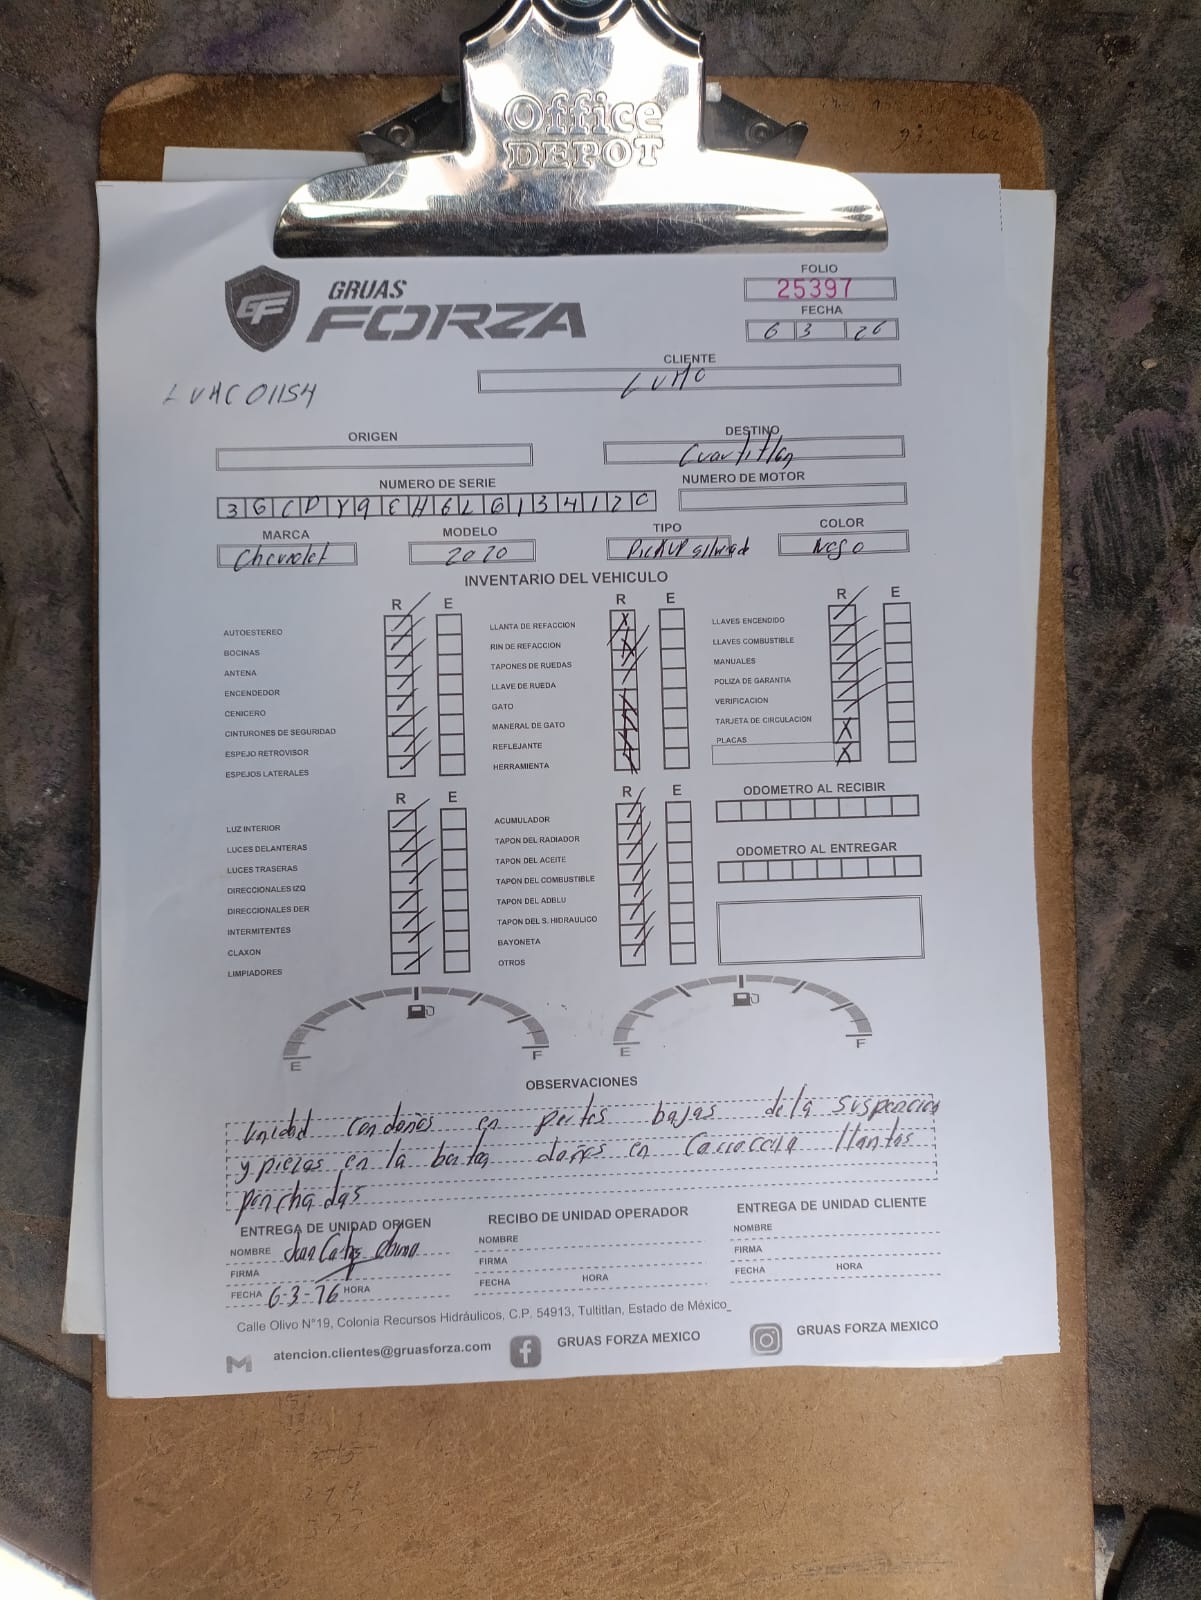 Office
DEPOT
GF GRUAS FORZA
FOLIO
25397
FECHA
6 3 26
CLIENTE
LUMO
LUMC01154
ORIGEN
DESTINO
Cuartitlan
NUMERO DE SERIE
3GCPY9EH6LG134120
NUMERO DE MOTOR
MARCA
Chevrolet
MODELO
2020
TIPO
PICKUP
COLOR
INVENTARIO DEL VEHICULO
R E
AUTOESTEREO
BOCINAS
ANTENA
ENCENDEDOR
CENICERO
CINTURONES DE SEGURIDAD
ESPEJO RETROVISOR
ESPEJOS LATERALES
R E
LLANTA DE REFACCION X
RIN DE REFACCION X
TAPONES DE RUEDAS
LLAVE DE RUEDA
GATO
MANERAL DE GATO
REFLEJANTE
HERRAMIENTA
R E
LLAVES ENCENDIDO
LLAVES COMBUSTIBLE
MANUALES
POLIZA DE GARANTIA
VERIFICACION
TARJETA DE CIRCULACION X
PLACAS X
R E
LUZ INTERIOR
LUCES DELANTERAS
LUCES TRASERAS
DIRECCIONALES IZQ
DIRECCIONALES DER
INTERMITENTES
CLAXON
LIMPIADORES
R E
ACUMULADOR
TAPON DEL RADIADOR
TAPON DEL ACEITE
TAPON DEL COMBUSTIBLE
TAPON DEL ADBLU
TAPON DEL S. HIDRAULICO
BAYONETA
OTROS
ODOMETRO AL RECIBIR
ODOMETRO AL ENTREGAR
E F
E F
OBSERVACIONES
Unidad con dañes en partes bajas de la suspencion
y piezas en la daños en llantas
ponchadas
ENTREGA DE UNIDAD ORIGEN
NOMBRE Juan Carlos
FIRMA
FECHA 6-3-26 HORA
RECIBO DE UNIDAD OPERADOR
NOMBRE
FIRMA
FECHA HORA
ENTREGA DE UNIDAD CLIENTE
NOMBRE
FIRMA
FECHA HORA
Calle Olivo N°19, Colonia Recursos Hidráulicos, C.P. 54913, Tultitlan, Estado de México_
atencion.clientes@gruasforza.com
GRUAS FORZA MEXICO
GRUAS FORZA MEXICO